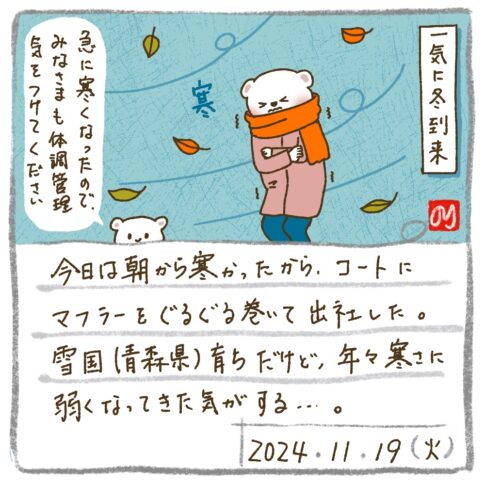 一気に冬到来
寒
急に寒くなったので、
みなさまも体調管理
気をつけてください
今日は朝から寒かったから、コートに
マフラーをぐるぐる巻いて出社した。
雪国(青森県)育ちだけど、年々寒さに
弱くなってきた気がする…。
2024.11.19(火)